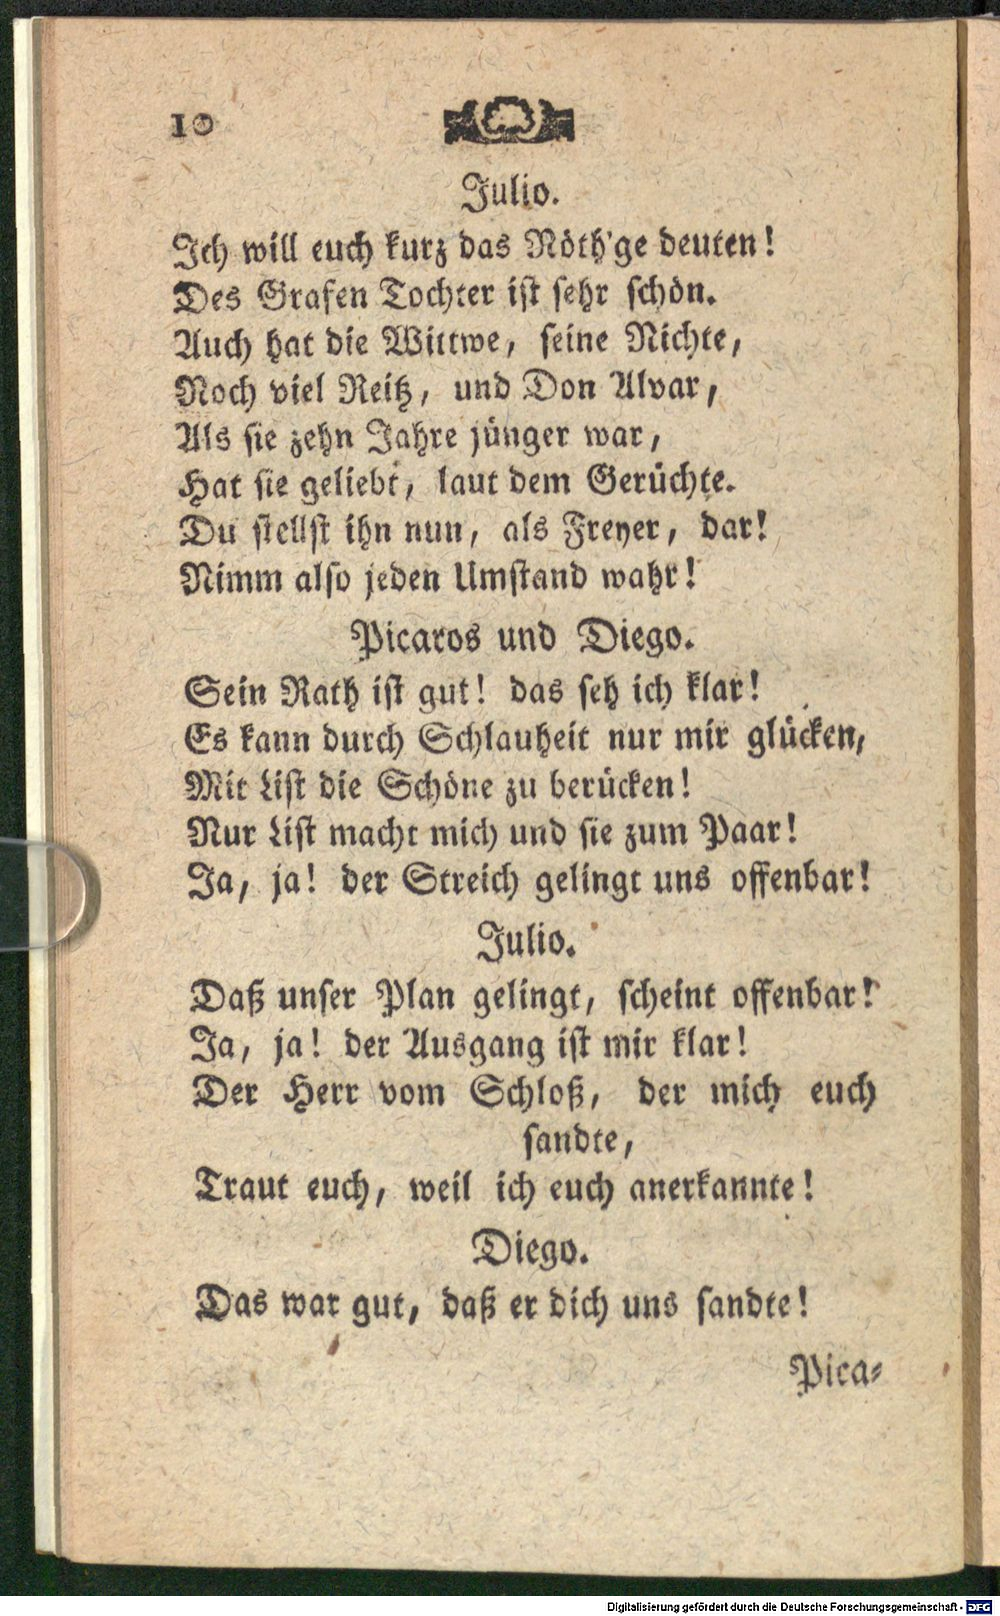 10
Julio.
Ich will euch kurz das Nöth'ge deuten!
Des Grafen Tochter ist sehr schön.
Auch hat die Wittwe, seine Nichte,
Noch viel Reitz, und Don Alvar,
Als sie zehn Jahre jünger war,
Hat sie geliebt, laut dem Gerüchte.
Du stellst ihn nun, als Freyer, dar!
Nimm also jeden Umstand wahr!
Picaros und Diego.
Sein Rath ist gut! das seh ich klar!
Es kann durch Schlauheit nur mir glücken,
Mit List die Schöne zu berücken!
Nur List macht mich und sie zum Paar!
Ja, ja! der Streich gelingt uns offenbar!
Julio.
Daß unser Plan gelingt, scheint offenbar!
Ja, ja! der Ausgang ist mir klar!
Der Herr vom Schloß, der mich euch
sandte,
Traut euch, weil ich euch anerkannte!
Diego.
Das war gut, daß er dich uns sandte!
Pica-
Digitalisierung gefördert durch die Deutsche Forschungsgemeinschaft - DFG